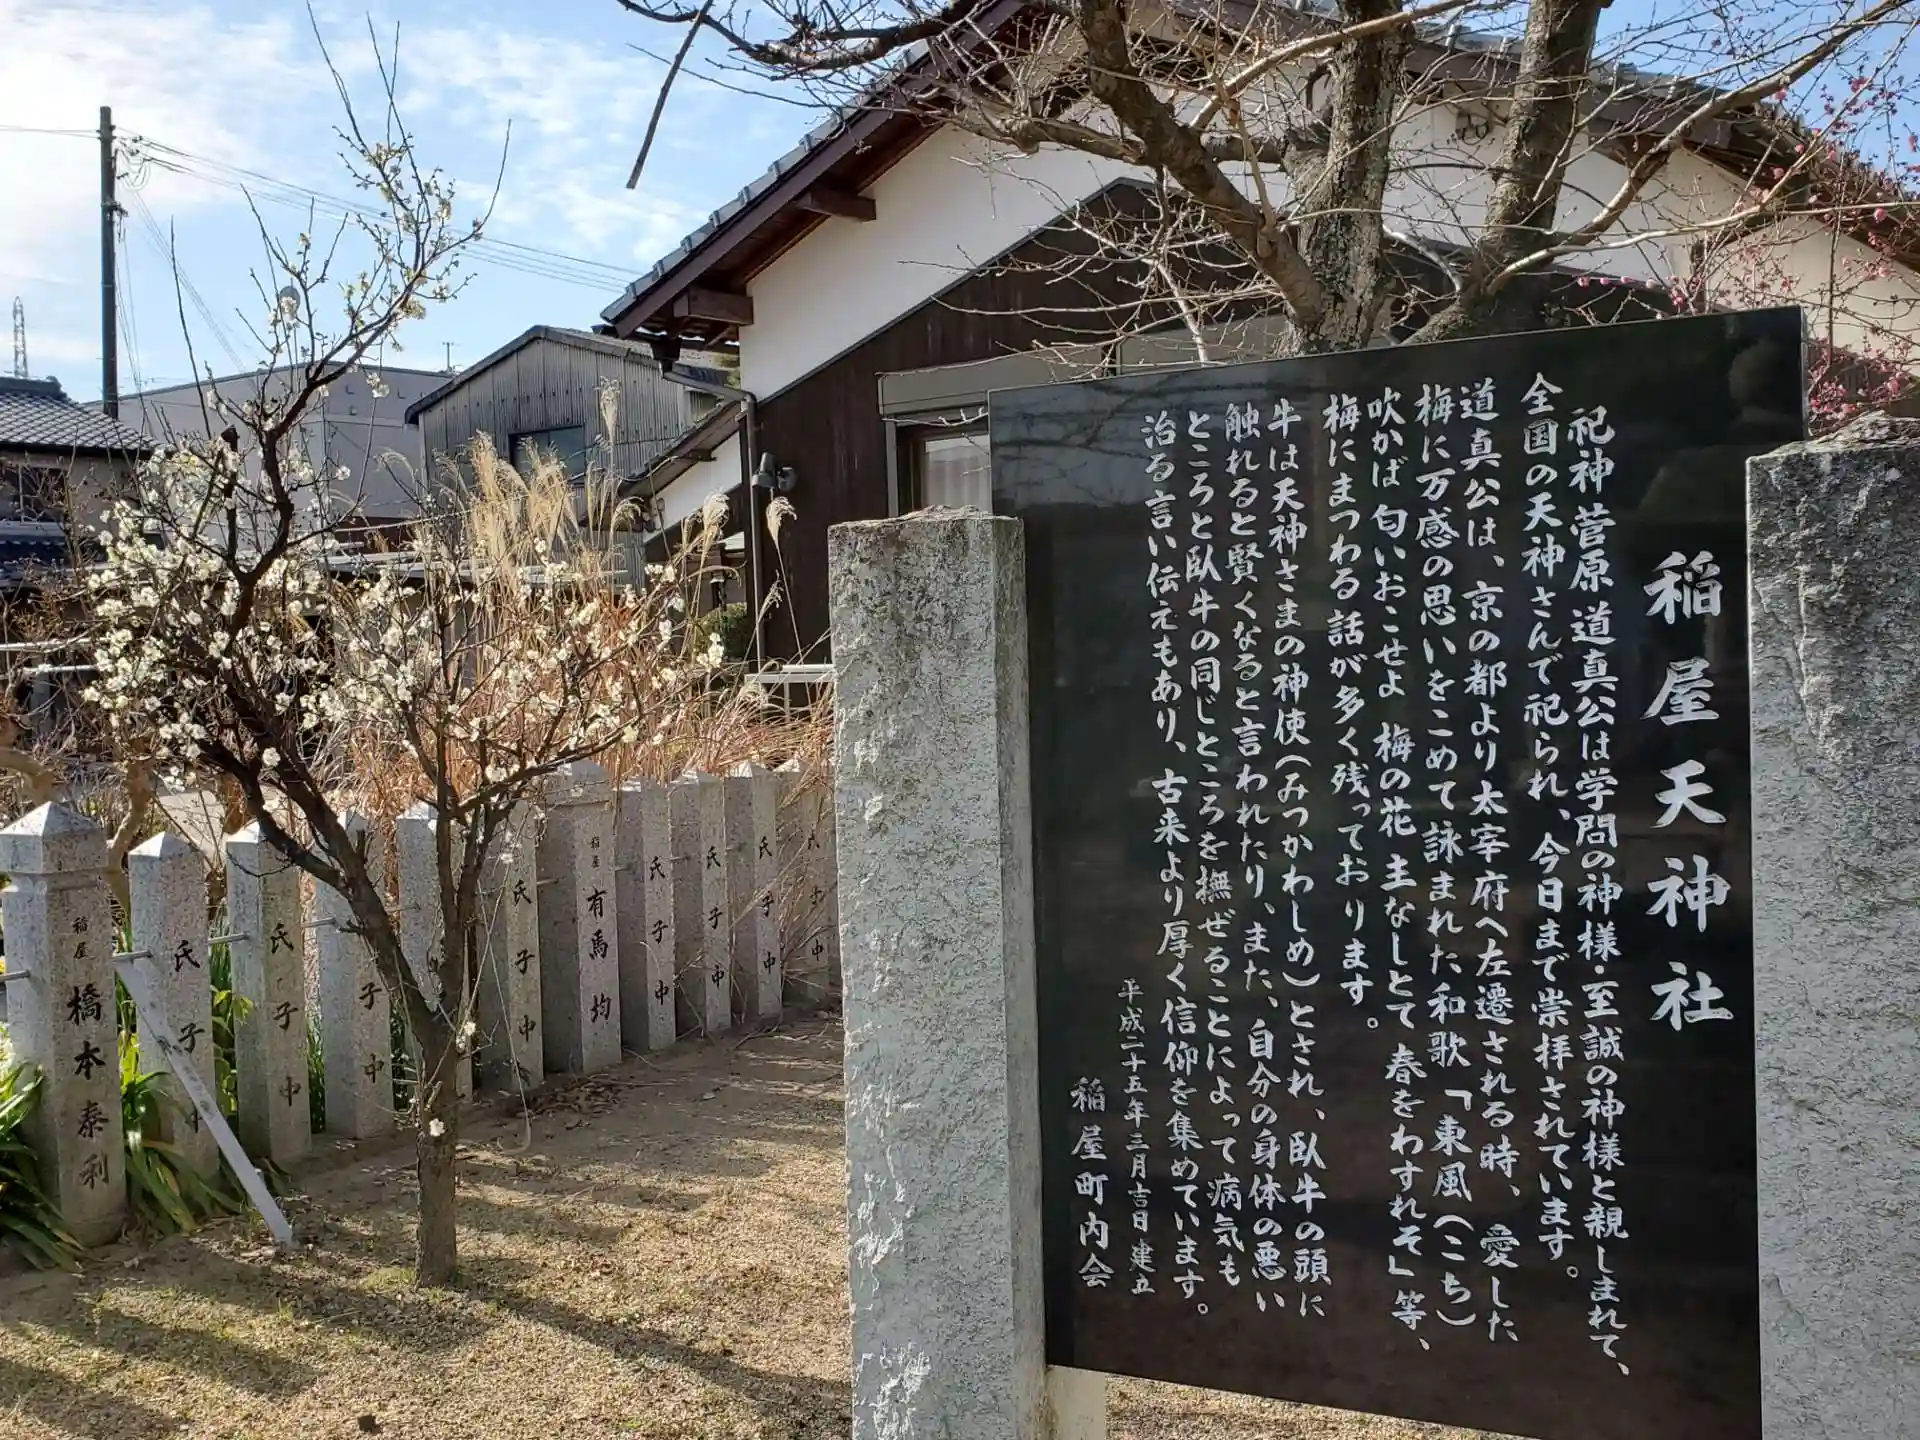 稲屋天神社
祀神菅原道真公は学問の神様・至誠の神様と親しまれて、
全国の天神さんで祀られ、今日まで崇拝されています。
道真公は、京の都より太宰府へ左遷される時、愛した
梅に万感の思いをこめて詠まれた和歌「東風(こち)
吹かば匂いおこせよ 梅の花 主なしとて 春をわすれそ」等、
梅にまつわる話が多く残っております。
牛は天神さまの神使(みつかわしめ)とされ、臥牛の頭に
触れると賢くなると言われたり、また、自分の身体の悪い
ところと臥牛の同じところを撫ぜることによって病気も
治る言い伝えもあり、古来より厚く信仰を集めています。
平成二十五年三月吉日建立
稲屋町内会
稲屋 橋本泰利
氏子中
氏子中
子中
氏子中
稲屋 有馬均
氏子中
氏子中
氏子中
氏子中